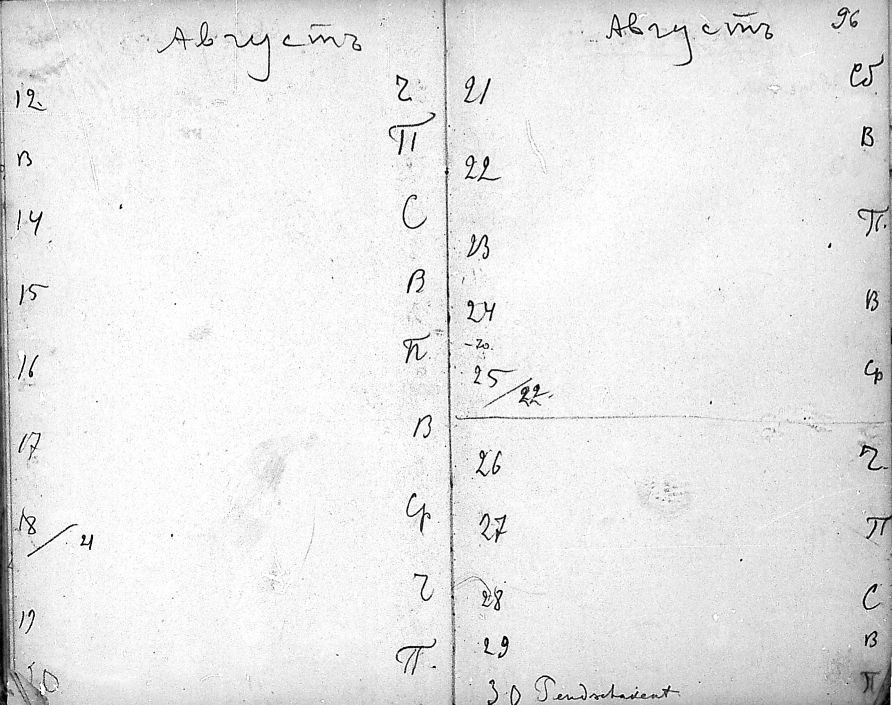 Августъ
12 Ч
13 П
14 С
15 В
16 П
17 В
18/4 Ср
19 Ч
20 П.
Августъ 96
21 Сб
22 В
23 П.
24 В
-20.
25/22. Ср
26 Ч.
27 П
28 С
29 В
30 П